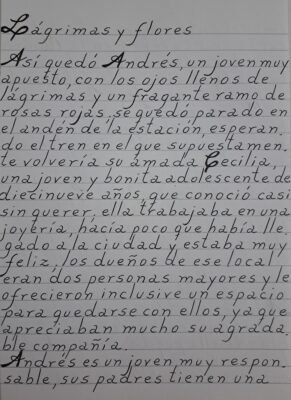 Lágrimas y flores
Así quedó Andrés, un joven muy
apuesto, con los ojos llenos de
lágrimas y un fragante ramo de
rosas rojas, se quedó parado en
el andén de la estación, esperan.
do el tren en el que supuestamen.
te volvería su amada Cecilia,
una joven y bonita adolescente de
diecinueve años, que conoció casi
sin querer, ella trabajaba en una
joyería, hacía poco que había lle.
gado a la ciudad y estaba muy
feliz, los dueños de ese local
eran dos personas mayores y le
ofrecieron inclusive un espacio
para quedarse con ellos, ya que
apreciaban mucho su agrada.
ble compañía.
Andrés es un joven muy respon.
sable, sus padres tienen una